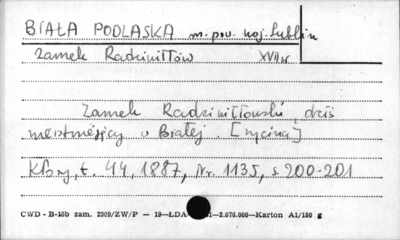 BIAŁA PODLASKA m. pow. woj. Lublin
Zamek Radziwiłłów XVII w
Zamek Radziwiłłowski, dziś
nieistniejący w Białej. [rycina]
Kłosy, t. 44, 1887, Nr. 1135, s. 200-201
CWD - B-15b zam. 2909/ZW/P — 19—ŁDA 1—2.076.000—Karton A1/180 g